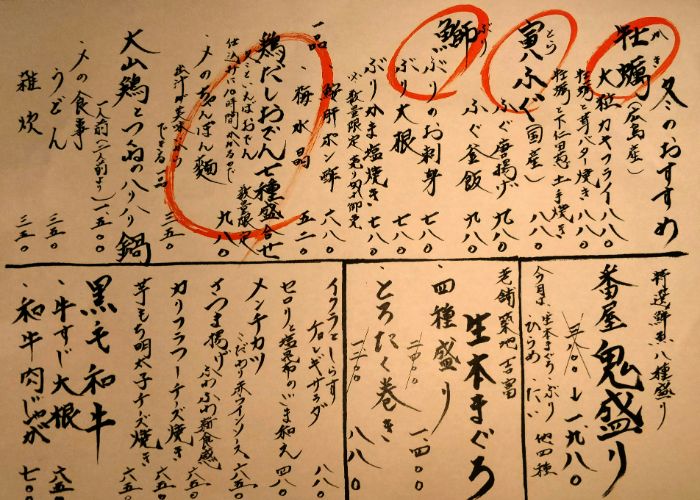 冬のおすすめ
牡蠣（広島産）
かき
・大粒カキフライ 八八〇
・牡蠣と芽バター焼き 七八〇
・牡蠣と下仁田葱の土手焼き 八八〇
寅ふぐ（国産）
とら
・ふぐ唐揚げ 九八〇
・ふぐ釜飯 九八〇
鰤
ぶり
・ぶりのお刺身 七八〇
・ぶり大根 七八〇
・ぶりかま塩焼き 七八〇
※数量限定 売切れ御免
一品
・鮟肝ポン酢 六八〇
・梅水晶 五二〇
鶏だしおでん七種盛合せ 九八〇
仕込みに10時間かかるので数量限定
・〆のちゃんぽん麺 三五〇
大山鶏とつくねのハリハリ鍋
一人前（二人前より） 一、五〇〇
〆の食事
うどん 三五〇
雑炊 三五〇
特選鮮魚八種盛り
番屋鬼盛り
↓一、九八〇
今日は、生本まぐろ、ぶり
ひらめ、たい 他四種
老舗築地 吉富
生本まぐろ
・四種盛り 一、四〇〇
・とろたく巻き 八八〇
イクラとしらす
チョレギサラダ 八八〇
セロリと塩昆布のごま和え 四八〇
メンチカツ
赤ワインソース 六五〇
さつま揚げ
ふわふわ新食感 六五〇
カリフラワーチーズ焼き 六五〇
芋もち明太子チーズ焼き 六五〇
黒毛和牛
・牛すじ大根 六五〇
・和牛肉じゃが 七〇〇